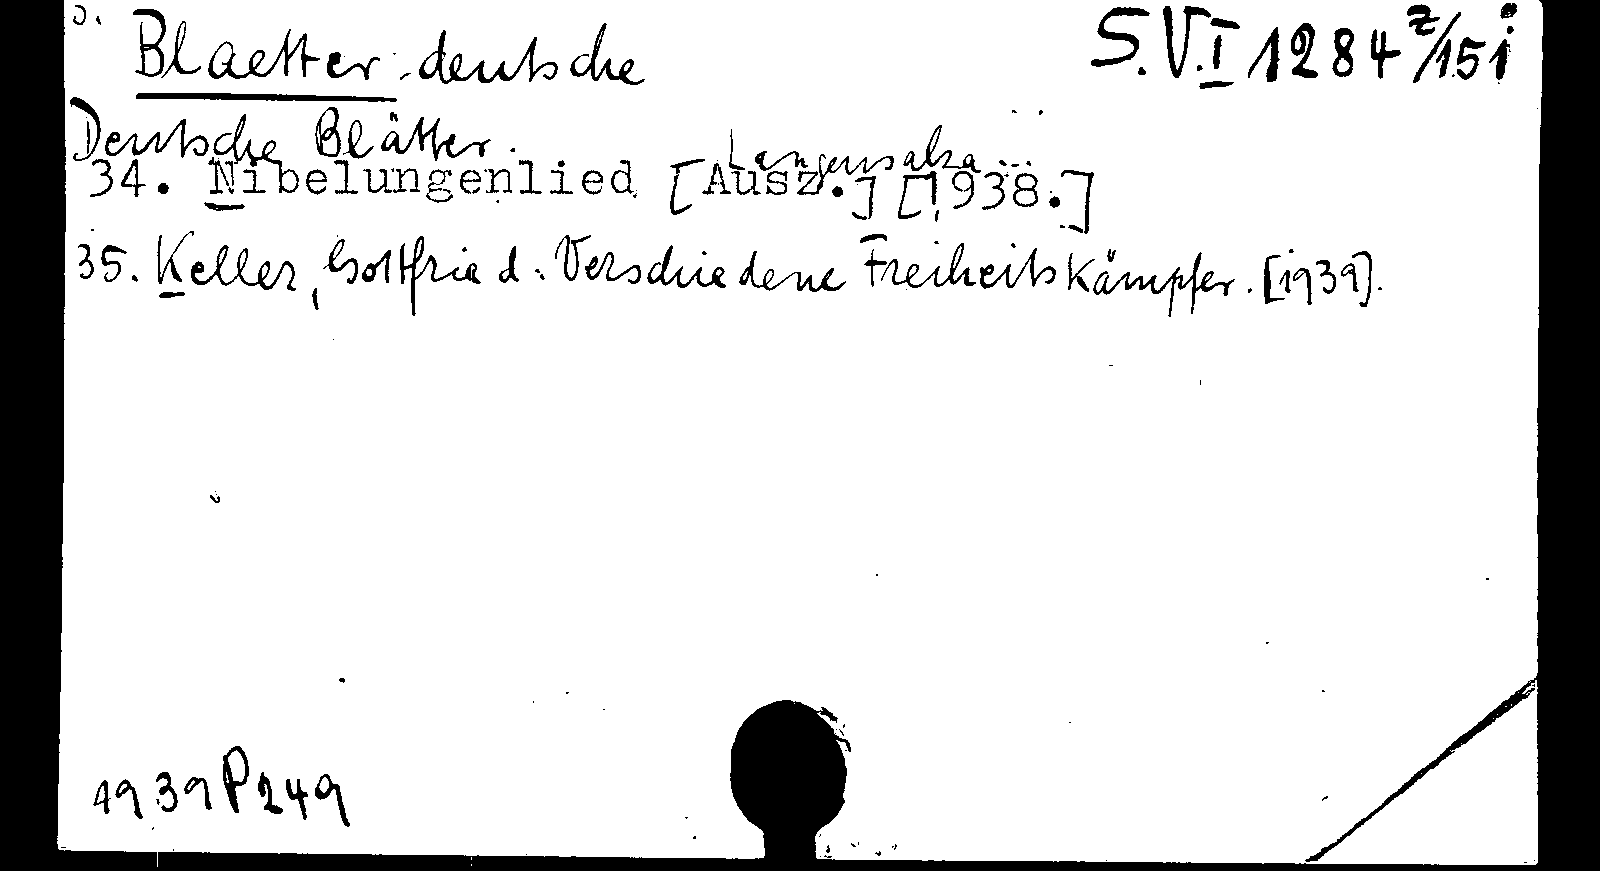 Blaetter, deutsche S.V.I 1284 z/15 i
Deutsche Blätter. Langensalza...
34. Nibelungenlied [Ausz.] [1938.]
35. Keller, Gottfried: Verschiedene Freiheitskämpfer. [1939].
1939 P 249